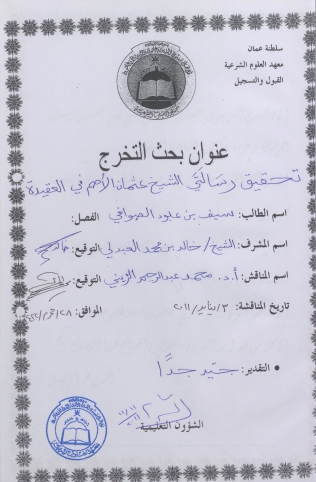 سلطنة عمان
معهد العلوم الشرعية
القبول والتسجيل
عنوان بحث التخرج
تحقيق رسالتي الشيخ عثمان الأصم في العقيدة
اسم الطالب: سيف بن عبود الصوافي الفصل:
اسم المشرف: الشيخ/خالد بن محمد العبدلي التوقيع:
اسم المناقش: أ.د. محمد عبدالرحيم الزيني التوقيع:
تاريخ المناقشة: ٣/يناير/٢٠١١ الموافق: ٢٨/محرم/
• التقدير: جيد جدًا
الشؤون التعليمية